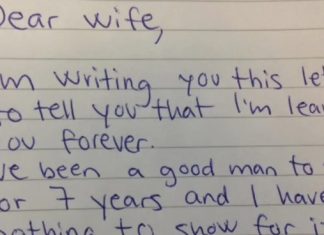 Dear Wife,
I'm writing you this let
to tell you that I'm leav
you forever.
I've been a good man to
for 7 years and I have
nothing to show for it